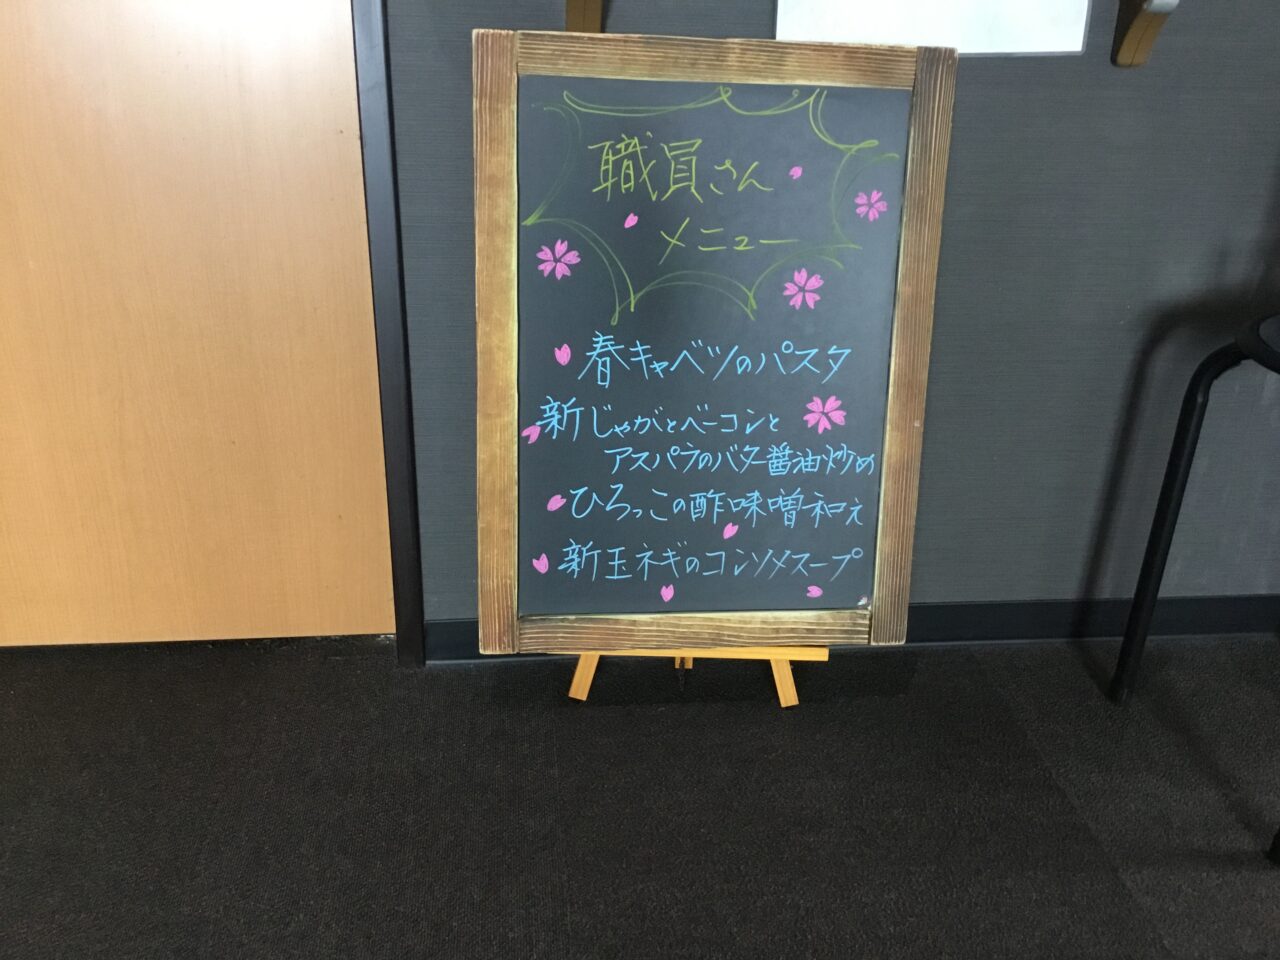 職員さん
メニュー
春キャベツのパスタ
新じゃがとベーコンと
アスパラのバター醤油炒め
ひろっこの酢味噌和え
新玉ネギのコンソメスープ